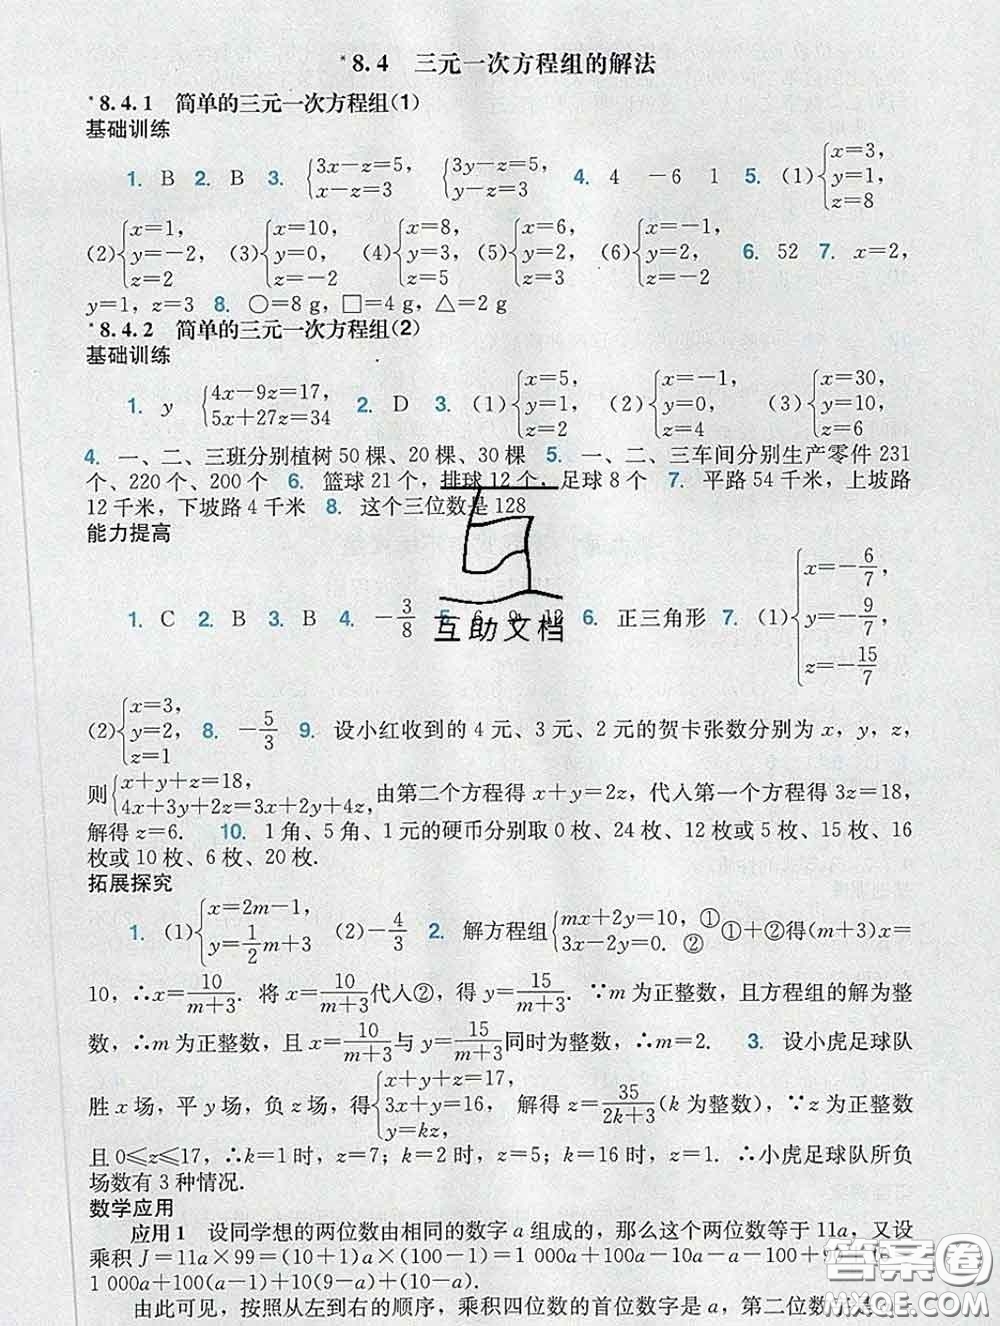 *8.4 三元一次方程组的解法
*8.4.1 简单的三元一次方程组(1)
基础训练
1. B 2. B 3. {3x-z=5, x-z=3 {3y-z=5, y-z=3 4. 4 -6 1 5. (1){x=3, y=1, z=8
(2){x=1, y=-2, z=2 (3){x=10, y=0, z=-2 (4){x=8, y=3, z=5 (5){x=6, y=2, z=2 (6){x=-1, y=2, z=-2 6. 52 7. x=2,
y=1, z=3 8. ○=8 g, □=4 g, △=2 g
*8.4.2 简单的三元一次方程组(2)
基础训练
1. y {4x-9z=17, 5x+27z=34 2. D 3. (1){x=5, y=1, z=2 (2){x=-1, y=0, z=4 (3){x=30, y=10, z=6
4. 一、二、三班分别植树 50 棵、20 棵、30 棵 5. 一、二、三车间分别生产零件 231
个、220 个、200 个 6. 篮球 21 个, 排球 12 个, 足球 8 个 7. 平路 54 千米, 上坡路
12 千米, 下坡路 4 千米 8. 这个三位数是 128
能力提高
1. C 2. B 3. B 4. -3/8 5. 6 9 12 6. 正三角形 7. (1){x=-6/7, y=-9/7, z=-15/7
互助文档
(2){x=3, y=2, z=1 8. -5/3 9. 设小红收到的 4 元、3 元、2 元的贺卡张数分别为 x, y, z,
则{x+y+z=18, 4x+3y+2z=3x+2y+4z, 由第二个方程得 x+y=2z, 代入第一个方程得 3z=18,
解得 z=6. 10. 1 角、5 角、1 元的硬币分别取 0 枚、24 枚、12 枚或 5 枚、15 枚、16
枚或 10 枚、6 枚、20 枚.
拓展探究
1. (1){x=2m-1, y=1/2m+3 (2)-4/3 2. 解方程组{mx+2y=10, ① 3x-2y=0. ② ①+②得(m+3)x=
10, ∴x=10/(m+3). 将 x=10/(m+3)代人②, 得 y=15/(m+3). ∵m 为正整数, 且方程组的解为整
数, ∴m 为正整数, 且 x=10/(m+3)与 y=15/(m+3)同时为整数, ∴m=2. 3. 设小虎足球队
胜 x 场, 平 y 场, 负 z 场, 得{x+y+z=17, 3x+y=16, y=kz, 解得 z=35/(2k+3)(k 为整数), ∵z 为正整数
且 0≤z≤17, ∴k=1 时, z=7; k=2 时, z=5; k=16 时, z=1. ∴小虎足球队所负
场数有 3 种情况.
数学应用
应用 1 设同学想的两位数由相同的数字 a 组成的, 那么这个两位数等于 11a, 又设
乘积 J=11a×99=(10+1)a×(100-1)=1 000a+100a-10a-a=
1 000a+10(9-a)+(10-a).
由此可见, 按照从左到右的顺序, 乘积四位数的首位数字是 a, 第二位数
答案圈
MXQE.COM